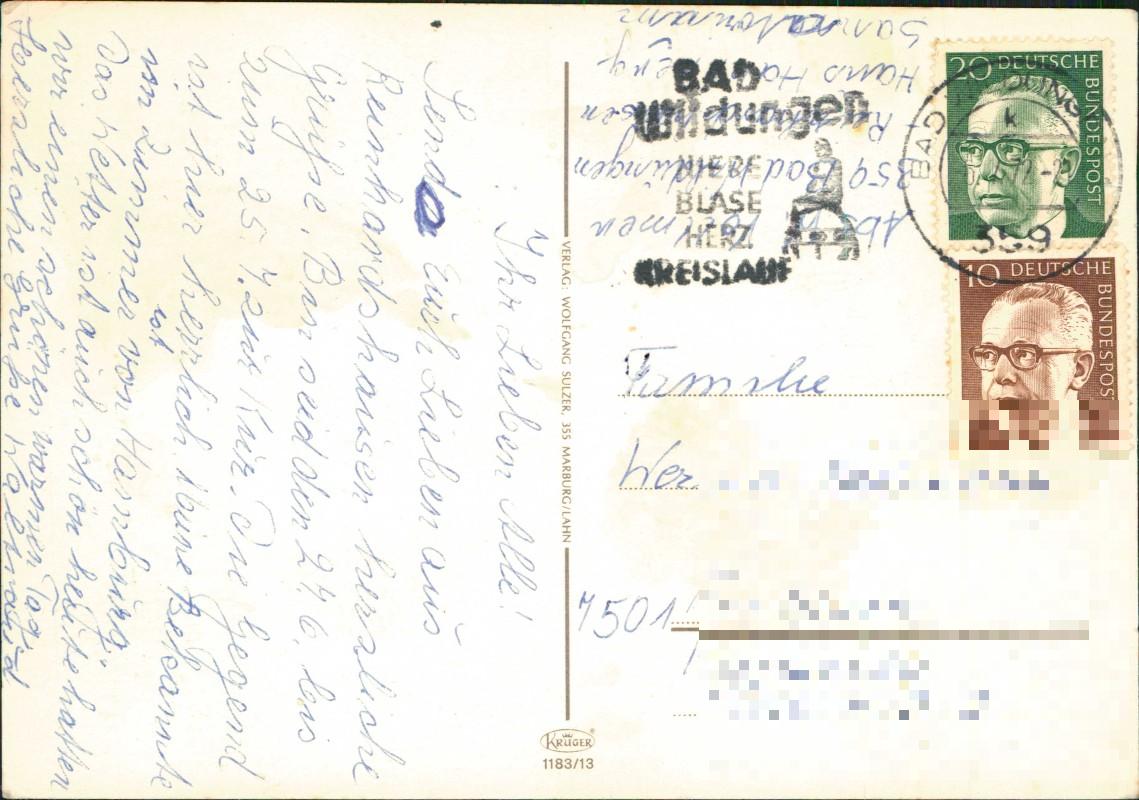 Ihr Lieben Alle!
Sende Euch Lieben aus
Reinhardshausen herzliche
Grüße. Bin seid den 27.6. bis
zum 25.7. zur Kur. Die Gegend
ist hier herrlich. Meine Bekannte
ist
von Zimmer von Hamburg.
Das Wetter ist auch schön heute hatten
wir einen schönen warmen Tag.
Herzliche Grüße Waltraud
VERLAG: WOLFGANG SULZER, 355 MARBURG/LAHN
KRÜGER
1183/13
Sanatorium
Hans Ha
359 Bad Wildungen
BAD
Wildungen
NIERE
BLASE
HERZ
KREISLAUF
BAD
k
359
20 DEUTSCHE
BUNDESPOST
10 DEUTSCHE
BUNDESPOST
Familie
Wer
7501